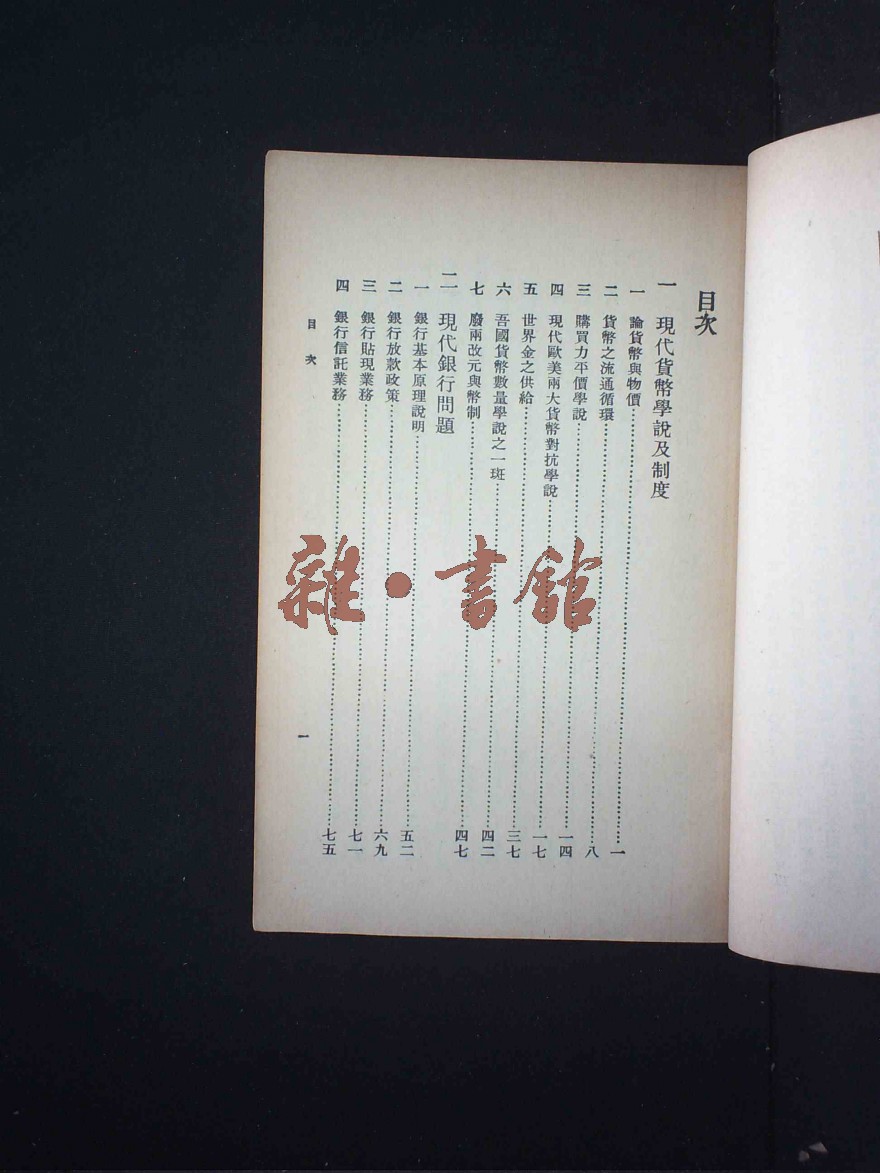 目次
一 現代貨幣學說及制度
一 論貨幣與物價……一
二 貨幣之流通循環……八
三 購買力平價學說……一四
四 現代歐美兩大貨幣對抗學說……一七
五 世界金之供給……三七
六 吾國貨幣數量學說之一斑……四二
七 廢兩改元與幣制……四七
二 現代銀行問題
一 銀行基本原理說明……五二
二 銀行放款政策……六九
三 銀行貼現業務……七一
四 銀行信託業務……七五
目次
一
雜·書館